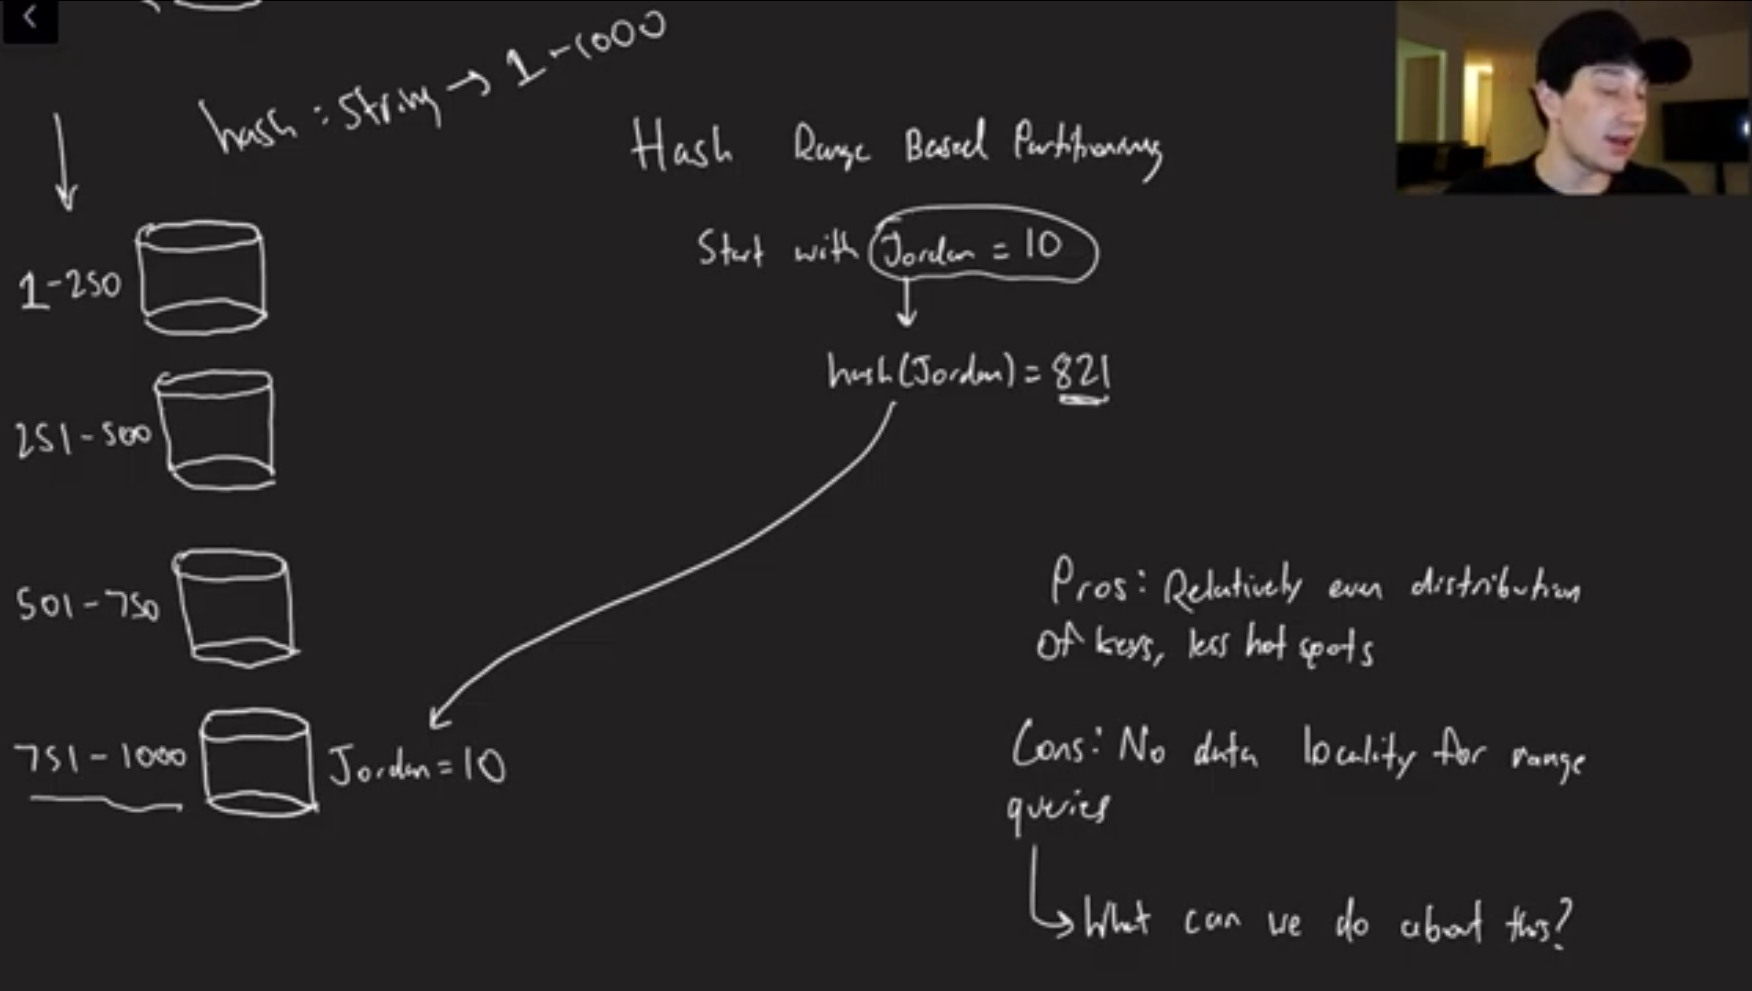 hash : String → 1-1000
Hash Range Based Partitioning
Start with Jordan = 10
1-250
hash(Jordan) = 821
251-500
501-750
Pros: Relatively even distribution
of keys, less hot spots
751-1000
Jordan=10
Cons: No data locality for range
queries
What can we do about this?